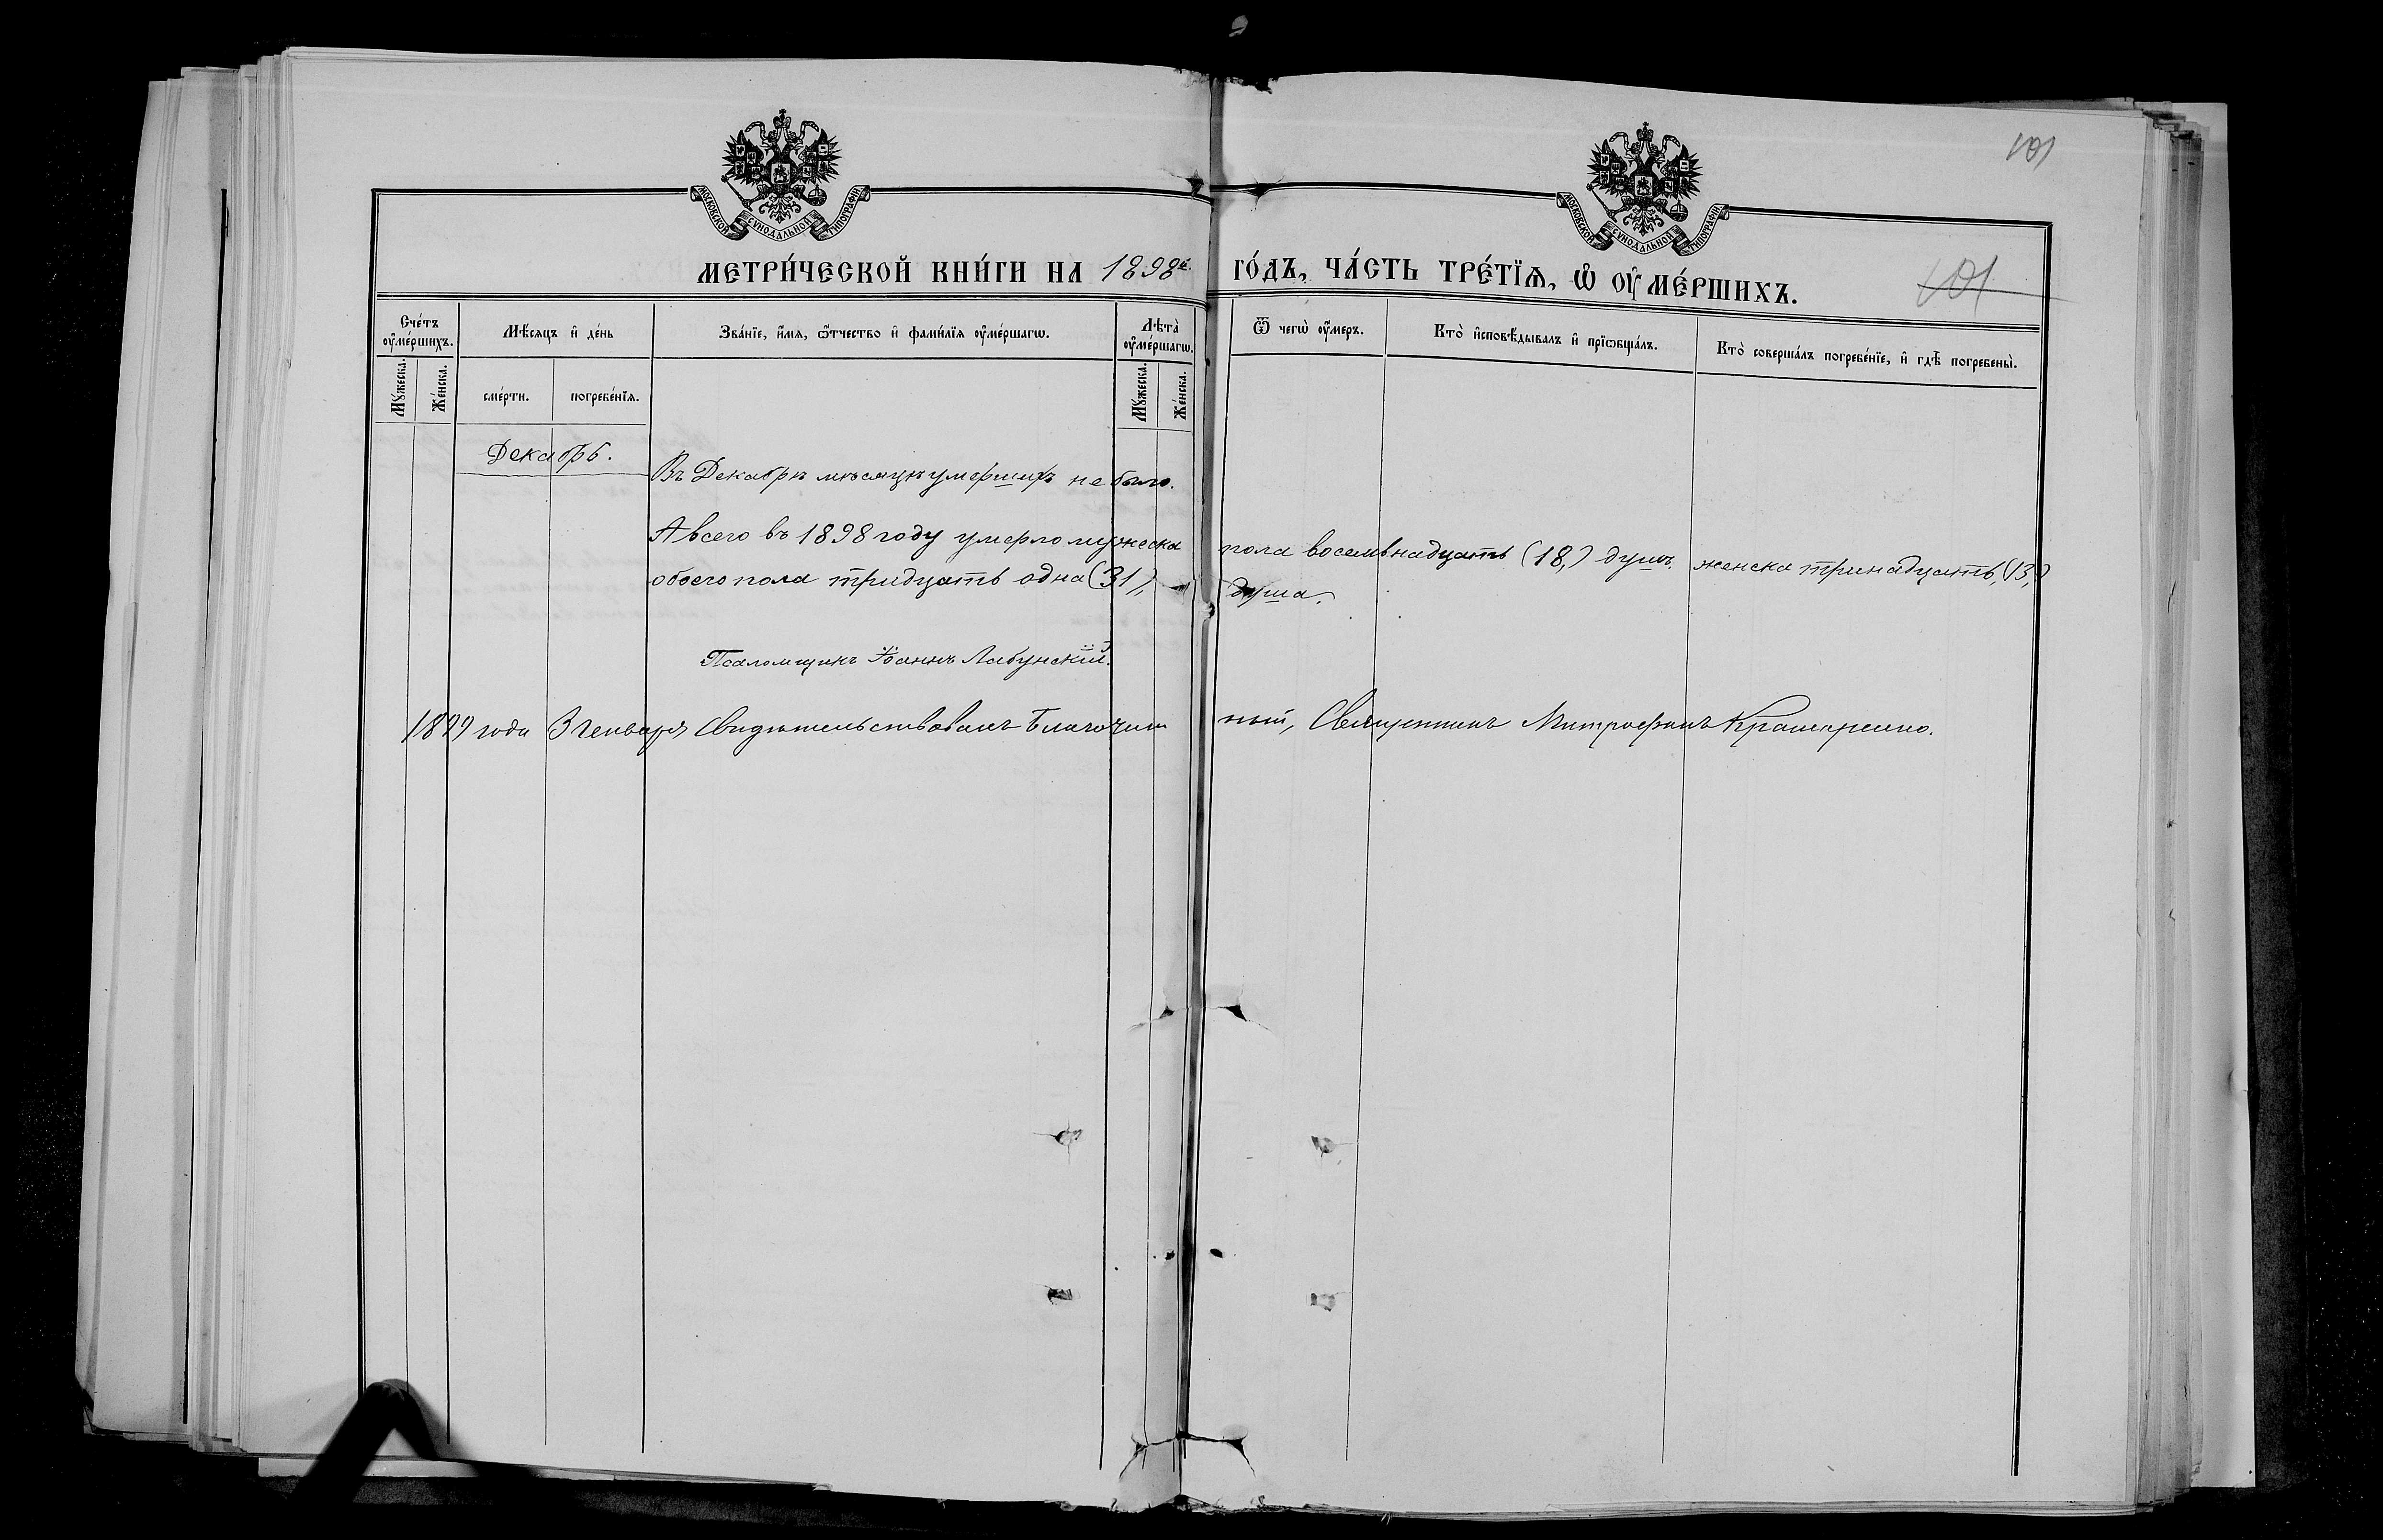 101
МОСКОВСКОЙ СѴНОДАЛЬНОЙ ТИПОГРАФІИ
МОСКОВСКОЙ СѴНОДАЛЬНОЙ ТИПОГРАФІИ
МЕТРИ́ЧЕСКОЙ КНИ́ГИ НА 1898й. ГО́ДЪ, ЧА́СТЬ ТРЕ́ТЇѦ, Ѡ҆ ОУ҆МЕ́РШИХЪ.
101
Сче́тъ оу҆ме́ршихъ.
Мꙋ́жеска.
Же́нска.
Мѣ́сѧцъ и҆ де́нь
сме́рти.
погребе́нїѧ.
Зва́нїе, и҆́мѧ, ѻ҆́тчество и҆ фами́лїѧ оу҆ме́ршагѡ.
Лѣ́та оу҆ме́ршагѡ.
Мꙋ́жеска.
Же́нска.
Ѿ чегѡ̀ оу҆́меръ.
Кто̀ и҆сповѣ́дывалъ и҆ прїѡбща́лъ.
Кто̀ соверша́лъ погребе́нїе, и҆ гдѣ̀ погребены̀.
Декабрь.
Въ Декабрѣ мѣсяцѣ умершихъ не было.
А всего въ 1898 году умерло мужеска пола восемьнадцать (18,) душъ. женска тринадцать, (13,)
обоего пола тридцать одна (31), душа.
Псаломщикъ Іоаннъ Лабунскій.
1899 года 3 Генваря Свидѣтельствовалъ Благочинный, Священникъ Митрофанъ